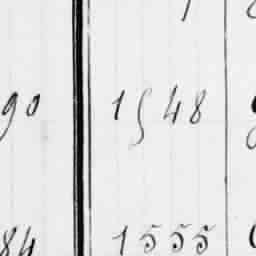 90 1548
84 1555